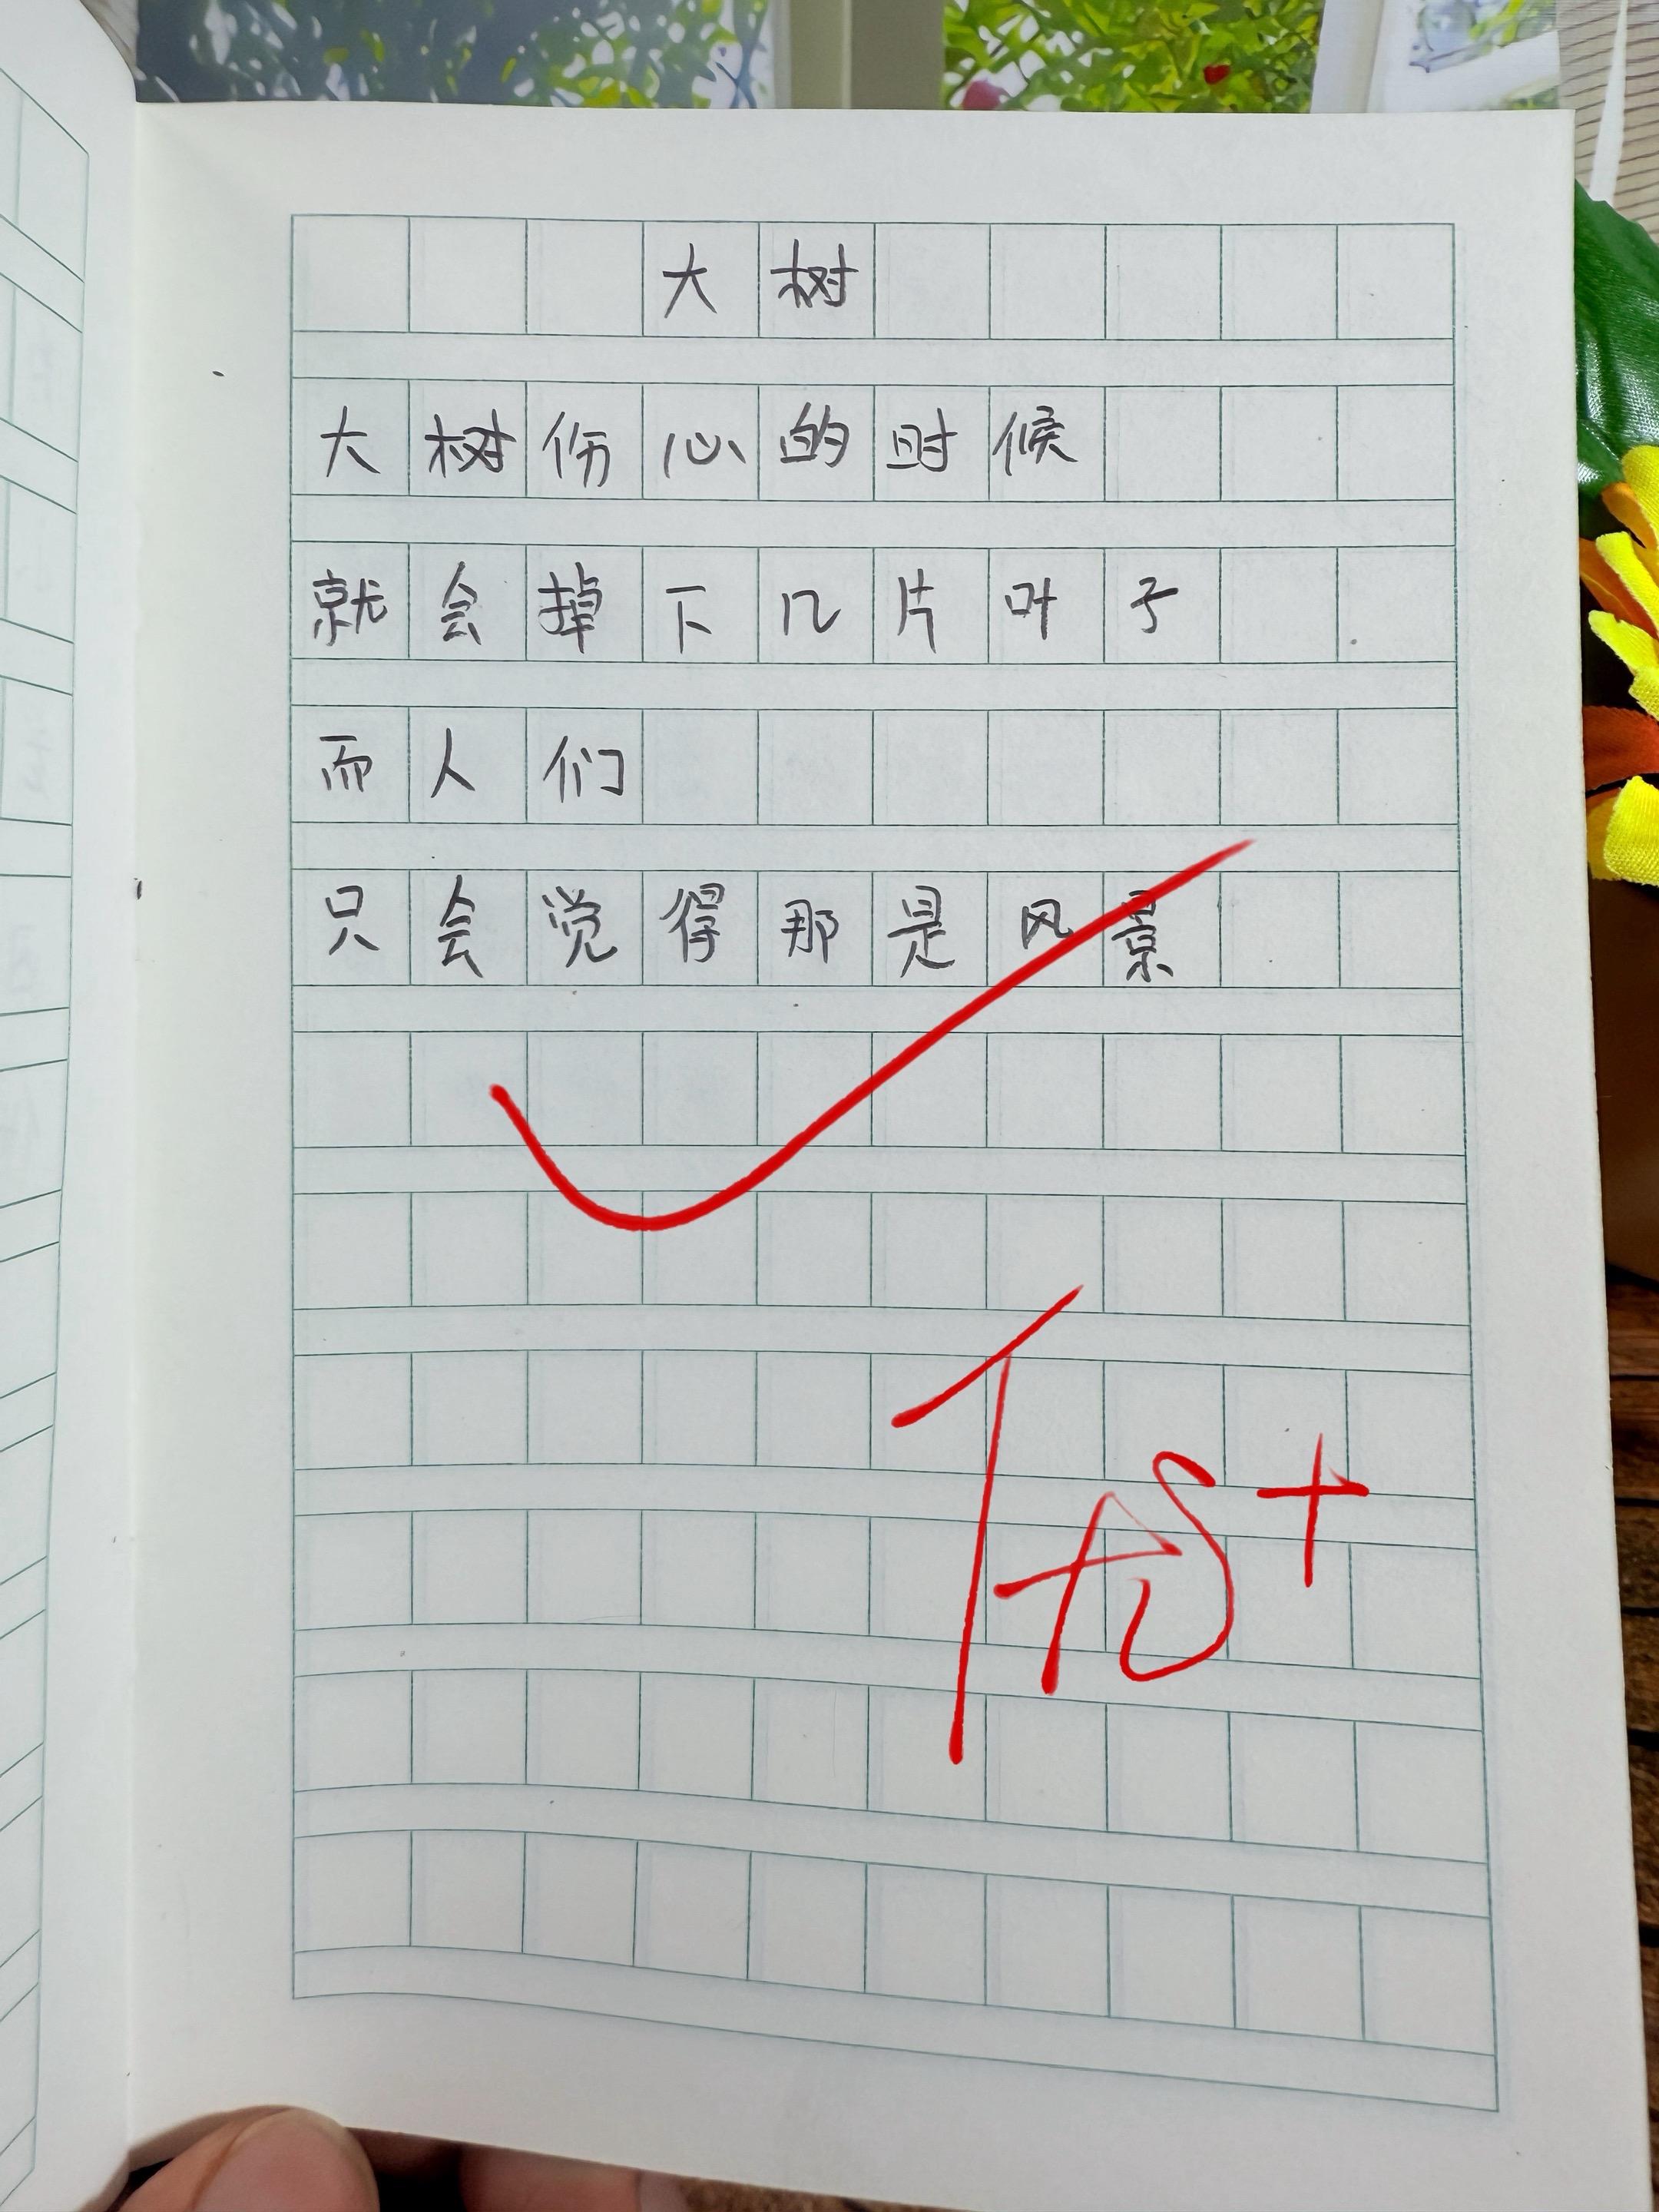 大树
大树伤心的时候
就会掉下几片叶子
而人们
只会觉得那是风景